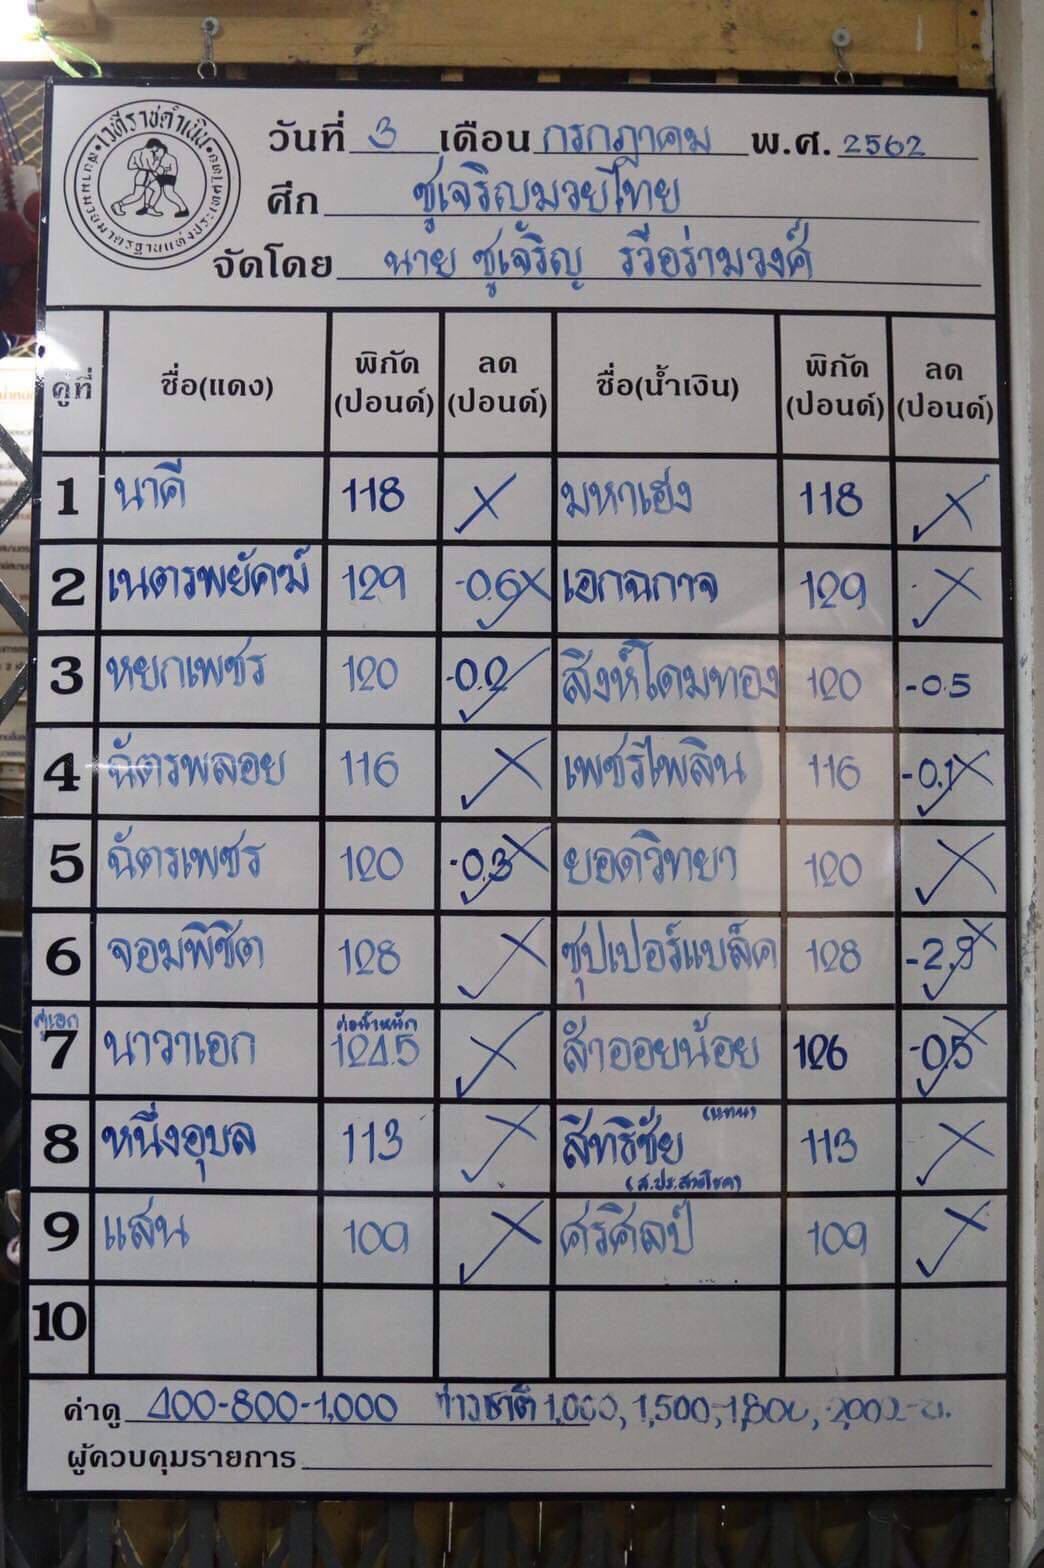 เวทีราชดำเนิน
วันที่ 3 เดือน กรกฎาคม พ.ศ. 2562
ศึก ชูเจริญมวยไทย
จัดโดย นาย ชูเจริญ รวีอร่ามวงศ์
คู่ที่ ชื่อ(แดง) พิกัด (ปอนด์) ลด (ปอนด์) ชื่อ(น้ำเงิน) พิกัด (ปอนด์) ลด (ปอนด์)
1 นาคี 118 มหาเฮง 118
2 เนตรพยัคฆ์ 129 -0.6 เอกฉกาจ 129
3 หยกเพชร 120 -0.2 สิงห์โดมทอง 120 -0.5
4 ฉัตรพลอย 116 เพชรไพลิน 116 -0.1
5 ฉัตรเพชร 120 -0.3 ยอดวิทยา 120
6 จอมพิชิต 128 ซุปเปอร์แบล็ค 128 -2.9
คู่เอก 7 นาวาเอก ต่อน้ำหนัก 124.5 ลำออยน้อย 126 -0.5
8 หนึ่งอุบล 113 สิทธิชัย (แทน) (ส.ปร.สายโชค) 113
9 แสน 109 ศรศิลป์ 109
10
ค่าดู 400-800-1,000 ชาวชาติ 1,000, 1,500,-1,800, 2,000-บ.
ผู้ควบคุมรายการ